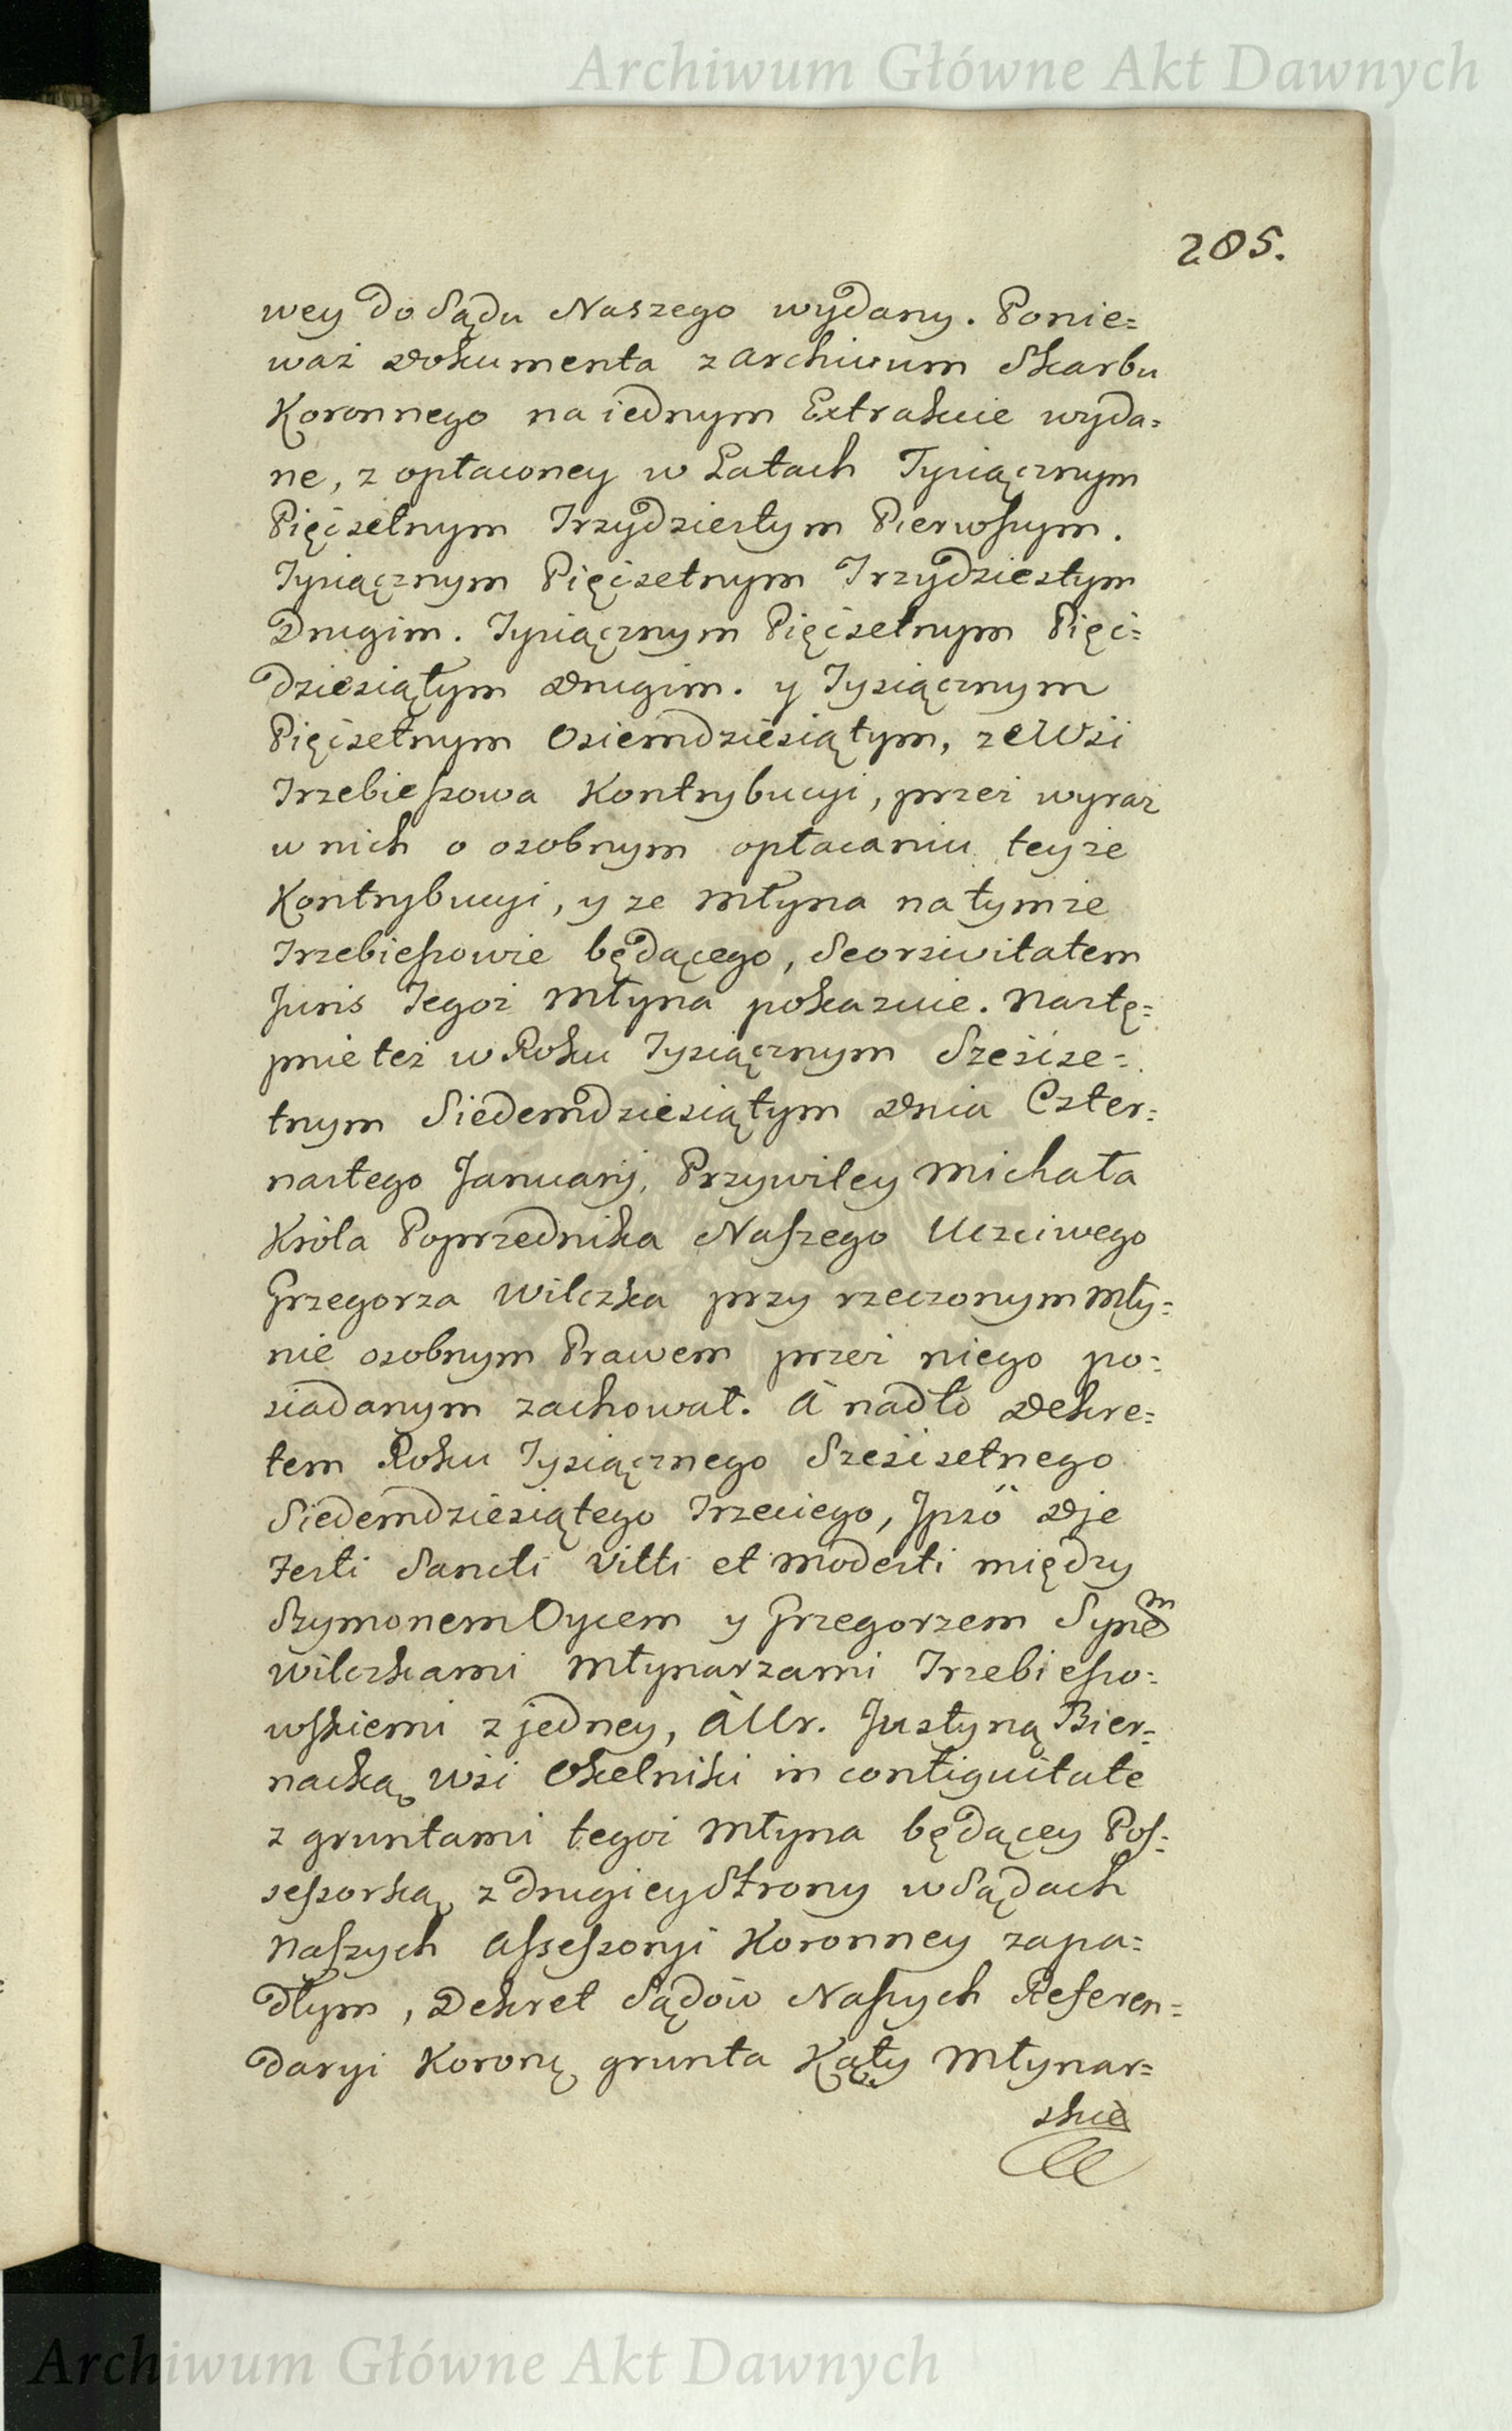 Archiwum Główne Akt Dawnych
205.
wey do Sądu Naszego wydany. Ponie=
waż Dokumenta z Archiwum Skarbu
Koronnego na iednym Extrakcie wyda=
ne, z opłaconey w Latach Tysiącznym
Pięćsetnym Trzydziestym Pierwszym.
Tysiącznym Pięćsetnym Trzydziestym
Drugim. Tysiącznym Pięćsetnym Pięć=
dziesiątym Drugim. y Tysiącznym
Pięćsetnym Osiemdziesiątym, ze Wsi
Trzebieszowa Kontrybucyi, przez wyraz
w nich o osobnym opłacaniu teyże
Kontrybucyi, y ze Młyna na tymże
Trzebieszowie będącego, Seorsivitatem
Juris Tegoż Młyna pokazuie. Nastę=
pnie też w Roku Tysiącznym Sześćse=
tnym Siedemdziesiątym Dnia Czter=
nastego Januarij, Przywiley Michała
Króla Poprzednika Naszego Uczciwego
Grzegorza Wilczka przy rzeczonym Mły=
nie osobnym Prawem przez niego po=
siadanym zachował. A nadto Dekre=
tem Roku Tysiącznego Sześćsetnego
Siedemdziesiątego Trzeciego, Jpsö Dje
Festi Sancti Vitti et Modesti między
Szymonem Oycem y Grzegorzem Synem
Wilczkami Młynarzami Trzebieszo=
wskiemi z jedney, à Ur. Justyną Bier=
nacką wsi Okelniki in contiguitate
z gruntami tegoż Młyna będącey Pos=
sessorką z drugiey Strony w Sądach
Naszych Assessoryi Koronney zapa=
dłym, Dekret Sądów Naszych Referen=
daryi Koronę grunta Kąty Młynar=
skie
Archiwum Główne Akt Dawnych